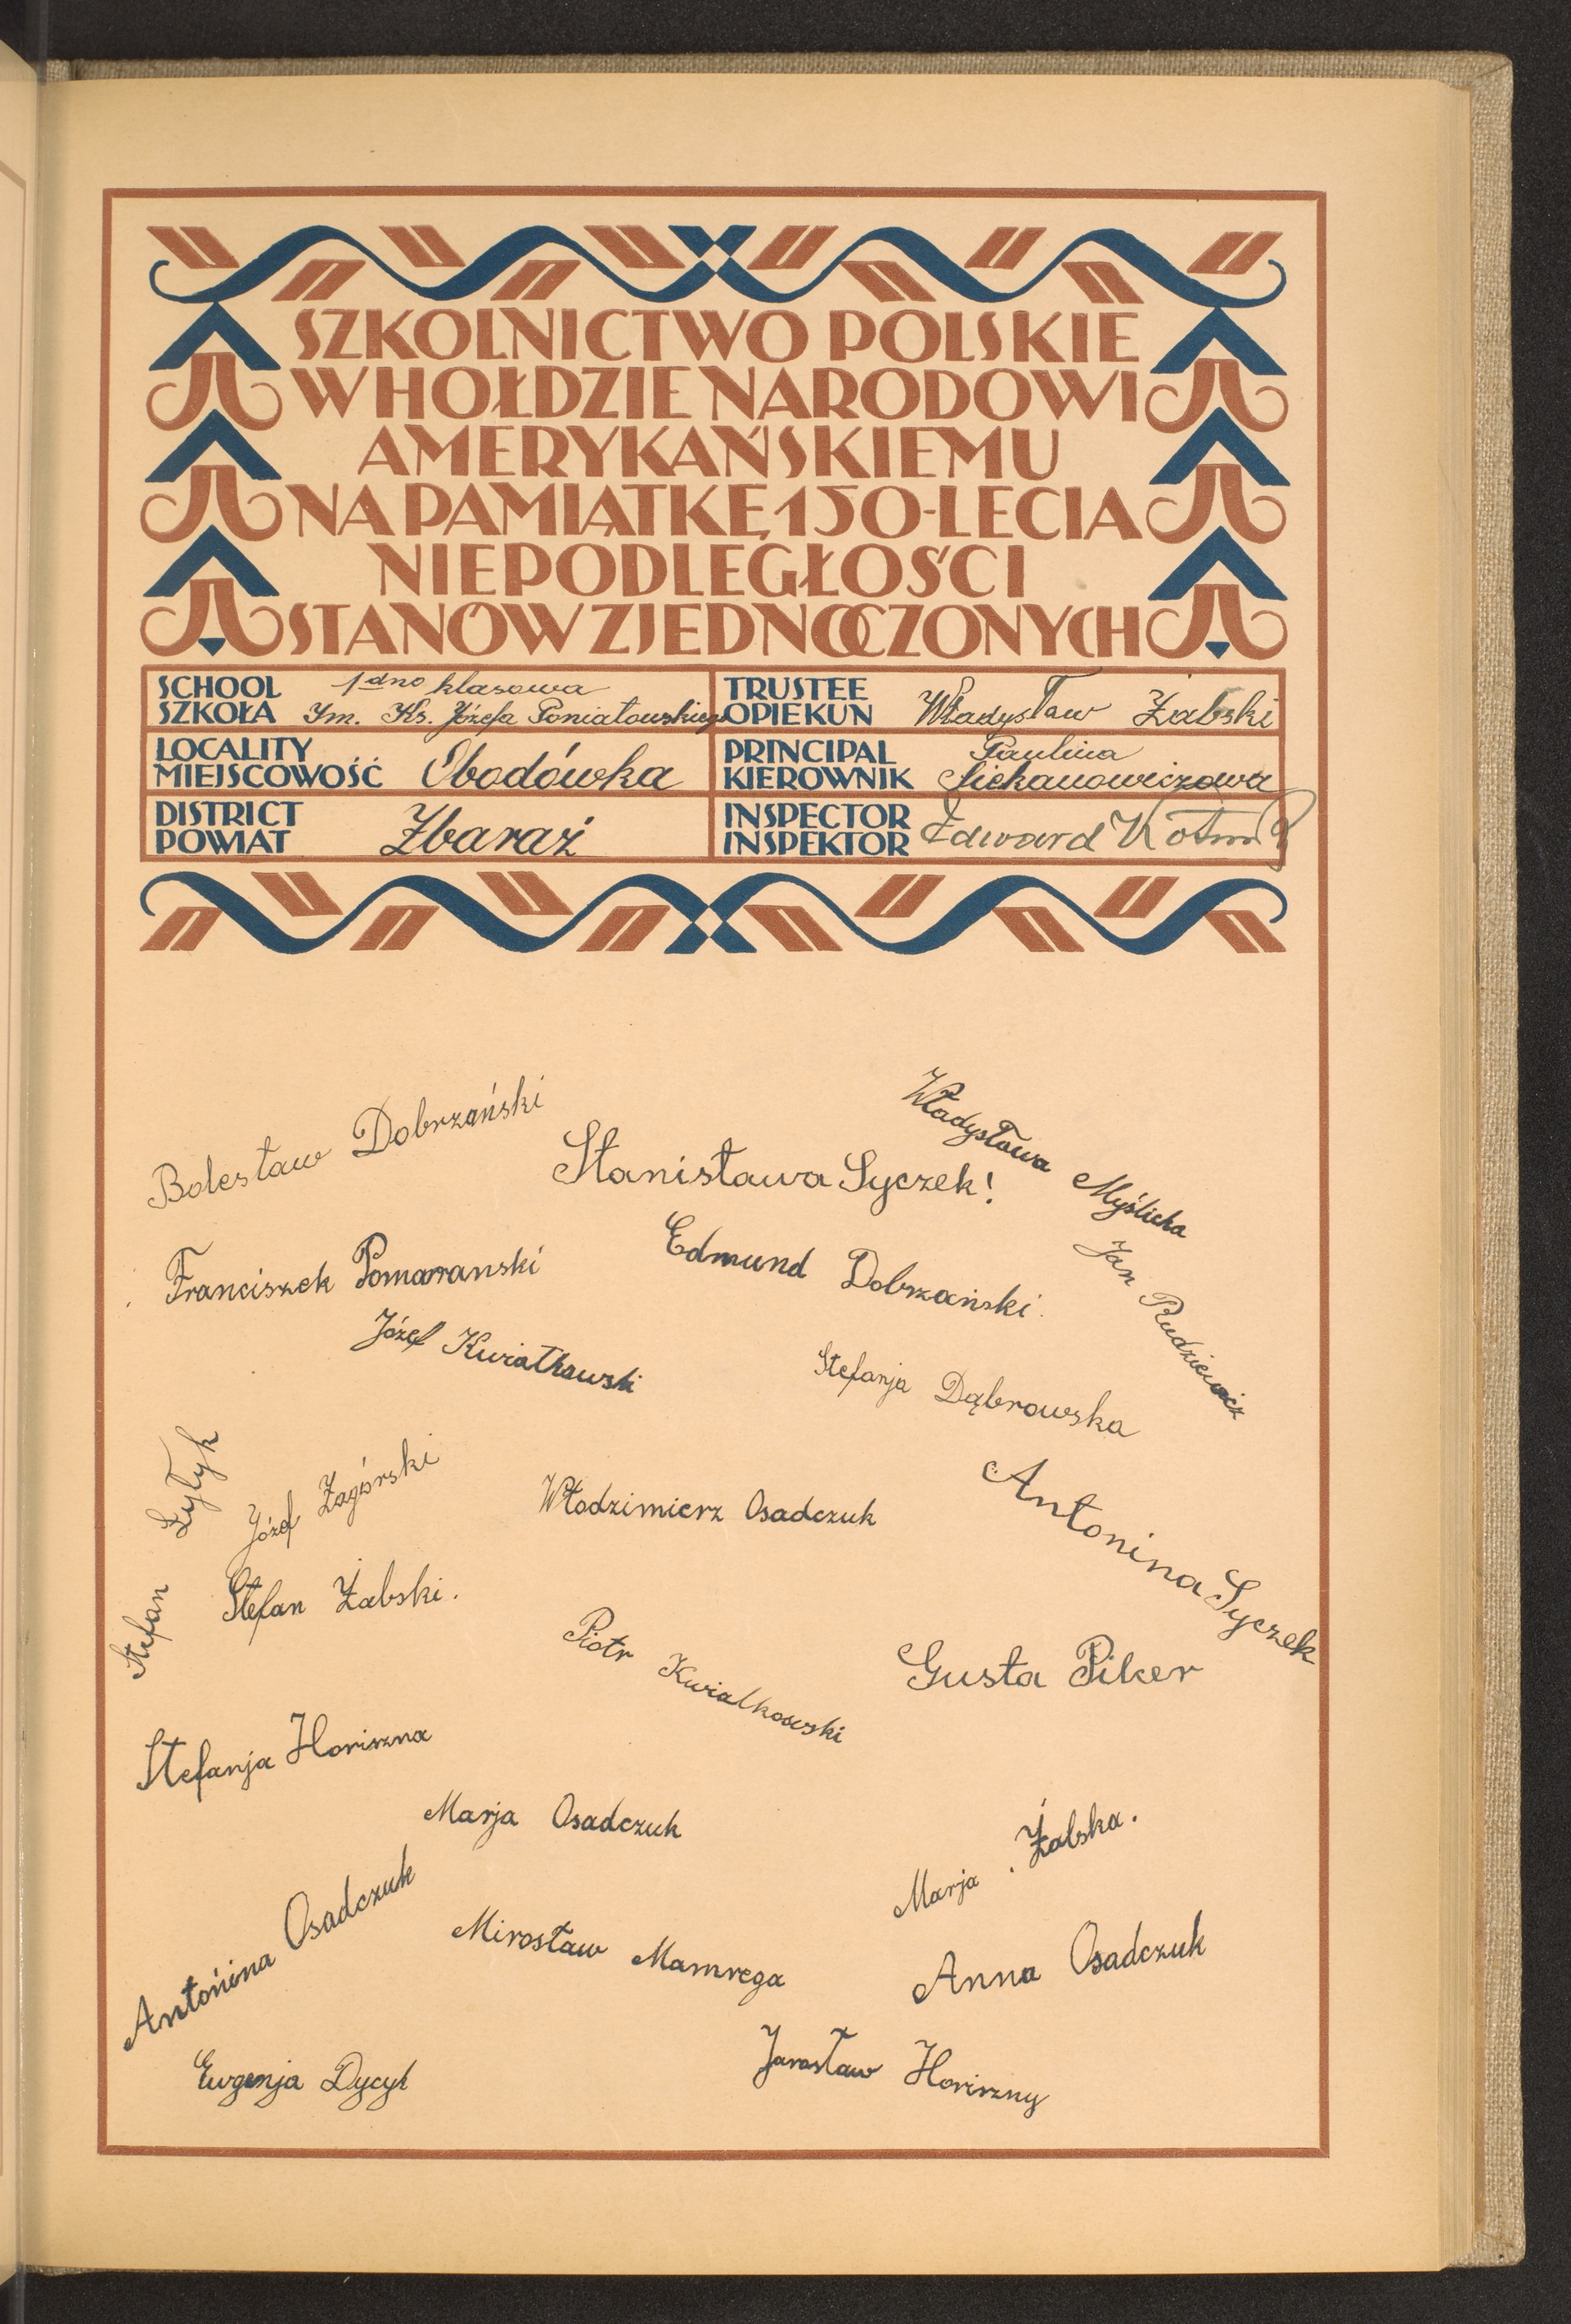 SZKOLNICTWO POLSKIE
W HOŁDZIE NARODOWI
AMERYKAŃSKIEMU
NA PAMIĄTKĘ 150-LECIA
NIEPODLEGŁOŚCI
STANÓW ZJEDNOCZONYCH
SCHOOL
SZKOŁA
1dno klasowa
Im. Ks. Józefa Poniatowskiego
TRUSTEE
OPIEKUN
Władysław Żabski
LOCALITY
MIEJSCOWOŚĆ
Obodówka
PRINCIPAL
KIEROWNIK
Paulina
Siekanowiczowa
DISTRICT
POWIAT
Zbaraż
INSPECTOR
INSPEKTOR
Edward
Bolesław Dobrzański
Stanisława Syczek!
Władysława Myślicka
Franciszek Pomaranski
Edmund Dobrzański.
Jan Rudziewicz
Józef Kwiatkowski
Stefanja Dąbrowska
Stefan Żyłyk
Józef Zagórski
Włodzimierz Osadczuk
Antonina Syczek
Stefan Żabski.
Piotr Kwialkowski
Gusta Piker
Stefanja Horiszna
Marja Osadczuk
Marja Żabska.
Antonina Osadczuk
Mirosław Mamrega
Anna Osadczuk
Ewgenja Dycyk
Jarosław Horiszny